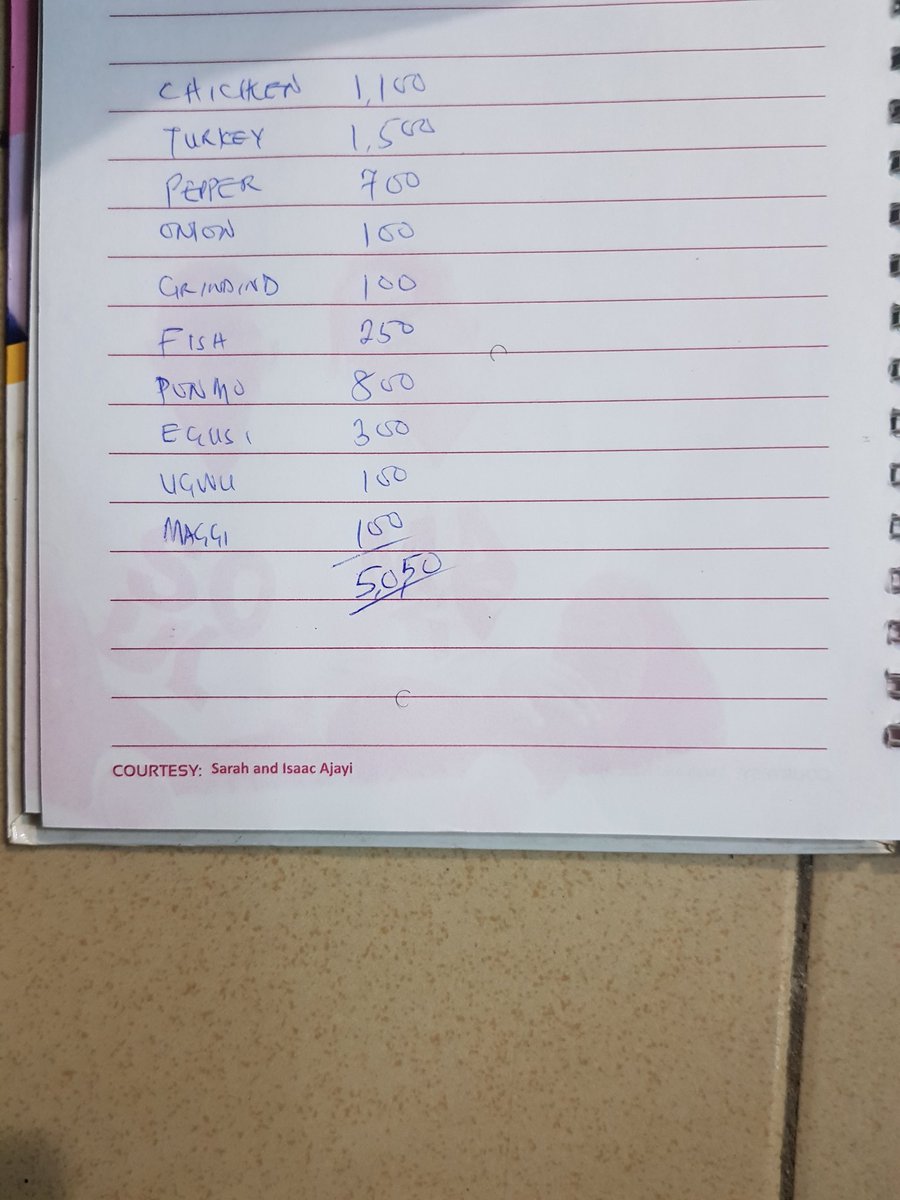 CHICKEN 1,100
TURKEY 1,500
PEPPER 700
ONION 100
GRINDIND 100
FISH 250
PONMO 800
EGUSI 300
UGWU 100
MAGGI 100
5,050
COURTESY: Sarah and Isaac Ajayi